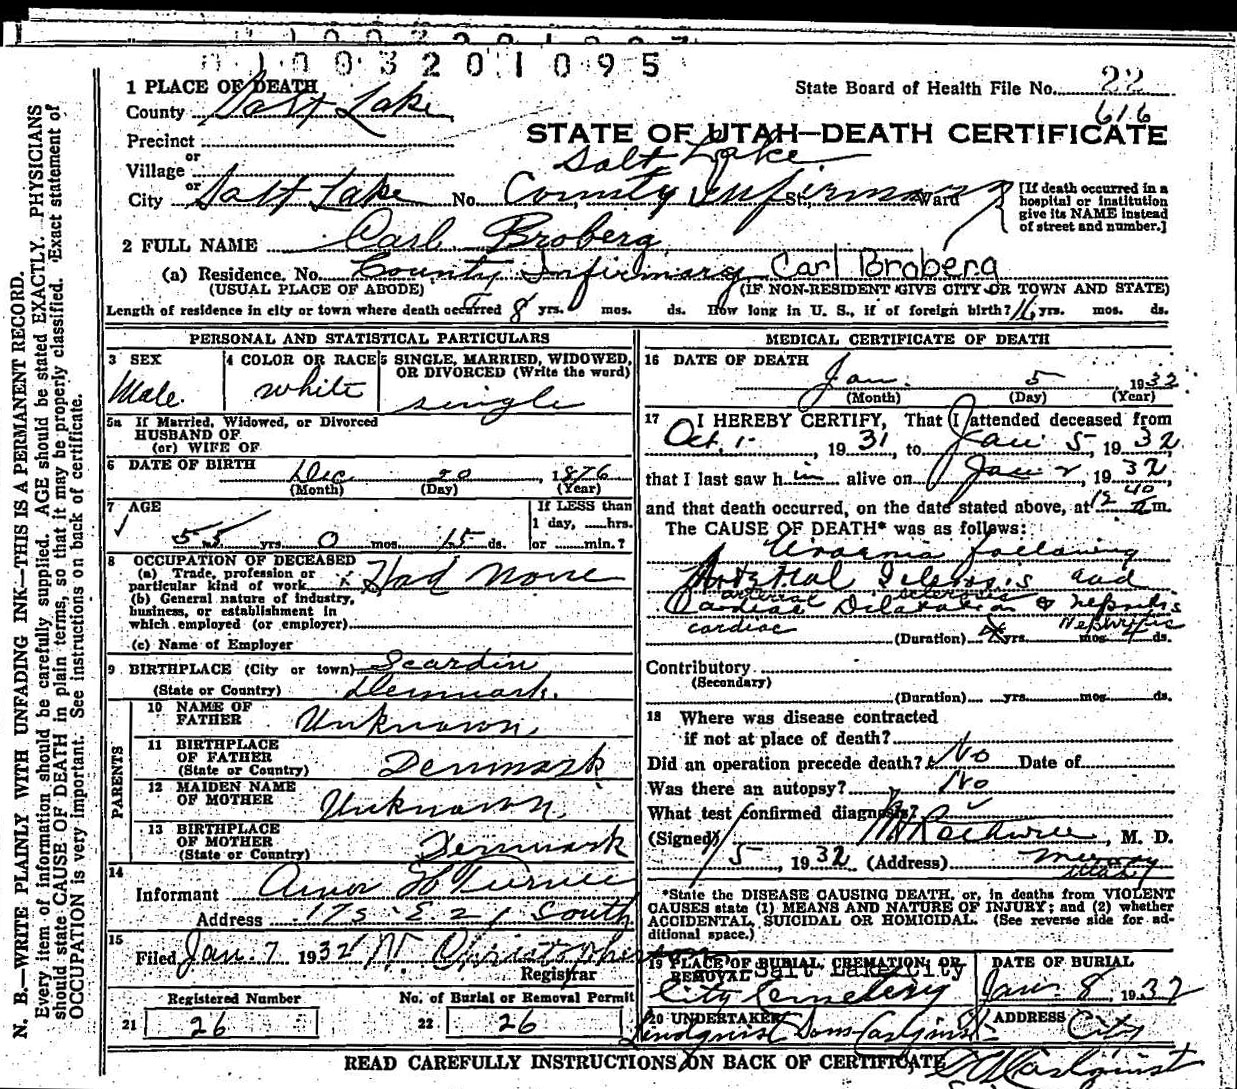 0 1 0 0 3 2 0 1 0 9 5
1 PLACE OF DEATH
State Board of Health File No. 22
616
County Salt Lake
STATE OF UTAH—DEATH CERTIFICATE
Precinct
or
Village
Salt Lake
or
City Salt Lake No. County Infirmary St., Ward
[If death occurred in a hospital or institution give its NAME instead of street and number.]
2 FULL NAME Carl Broberg
(a) Residence. No. County Infirmary Carl Broberg
(USUAL PLACE OF ABODE) (IF NON-RESIDENT GIVE CITY OR TOWN AND STATE)
Length of residence in city or town where death occurred 8 yrs. mos. ds. How long in U. S., if of foreign birth? 16 yrs. mos. ds.
PERSONAL AND STATISTICAL PARTICULARS
3 SEX
Male
4 COLOR OR RACE
white
5 SINGLE, MARRIED, WIDOWED,
OR DIVORCED (Write the word)
single
5a If Married, Widowed, or Divorced
HUSBAND OF
(or) WIFE OF
6 DATE OF BIRTH Dec 20, 1876
(Month) (Day) (Year)
7 AGE
55 yrs. 0 mos. 15 ds.
If LESS than
1 day, ......hrs.
or ......min.?
8 OCCUPATION OF DECEASED
(a) Trade, profession or
particular kind of work Had None
(b) General nature of industry,
business, or establishment in
which employed (or employer)
(c) Name of Employer
9 BIRTHPLACE (City or town)
(State or Country) Denmark.
PARENTS
10 NAME OF
FATHER Unknown
11 BIRTHPLACE
OF FATHER
(State or Country) Denmark
12 MAIDEN NAME
OF MOTHER Unknown
13 BIRTHPLACE
OF MOTHER
(State or Country) Denmark
14
Informant
Address 175 E 21 South
15
Filed Jan. 7 1932 Christopherson
Registrar
Registered Number
21 26
No. of Burial or Removal Permit
22 26
MEDICAL CERTIFICATE OF DEATH
16 DATE OF DEATH
Jan. 5, 1932
(Month) (Day) (Year)
17 I HEREBY CERTIFY, That I attended deceased from
Oct. 1, 1931, to Jan 5, 1932
that I last saw him alive on Jan 2, 1932,
and that death occurred, on the date stated above, at 12 40 m.
The CAUSE OF DEATH* was as follows:
Uraemia following
Sclerosis and
arterial sclerosis
Cardiac Dilatation &
cardiac Nephritis
(Duration) yrs. mos. ds.
Contributory
(Secondary)
(Duration) yrs. mos. ds.
18 Where was disease contracted
if not at place of death?
Did an operation precede death? No Date of
Was there an autopsy? No
What test confirmed diagnosis?
(Signed) M. D.
1/5, 1932 (Address) Murray
Utah
*State the DISEASE CAUSING DEATH, or, in deaths from VIOLENT
CAUSES state (1) MEANS AND NATURE OF INJURY; and (2) whether
ACCIDENTAL, SUICIDAL OR HOMICIDAL. (See reverse side for ad-
ditional space.)
19 PLACE OF BURIAL, CREMATION, OR
REMOVAL Salt Lake City
City Cemetery
DATE OF BURIAL
Jan. 8, 1932
20 UNDERTAKER
Lindquist Sons Carlquist
ADDRESS
City
READ CAREFULLY INSTRUCTIONS ON BACK OF CERTIFICATE
N. B.—WRITE PLAINLY WITH UNFADING INK—THIS IS A PERMANENT RECORD.
Every item of information should be carefully supplied. AGE should be stated EXACTLY. PHYSICIANS
should state CAUSE OF DEATH in plain terms, so that it may be properly classified. Exact statement of
OCCUPATION is very important. See instructions on back of certificate.